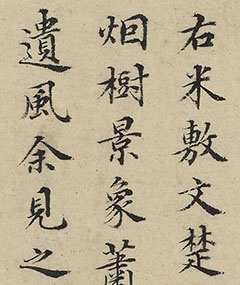 右米敷文楚
烟樹景象蕭
遺風余見之